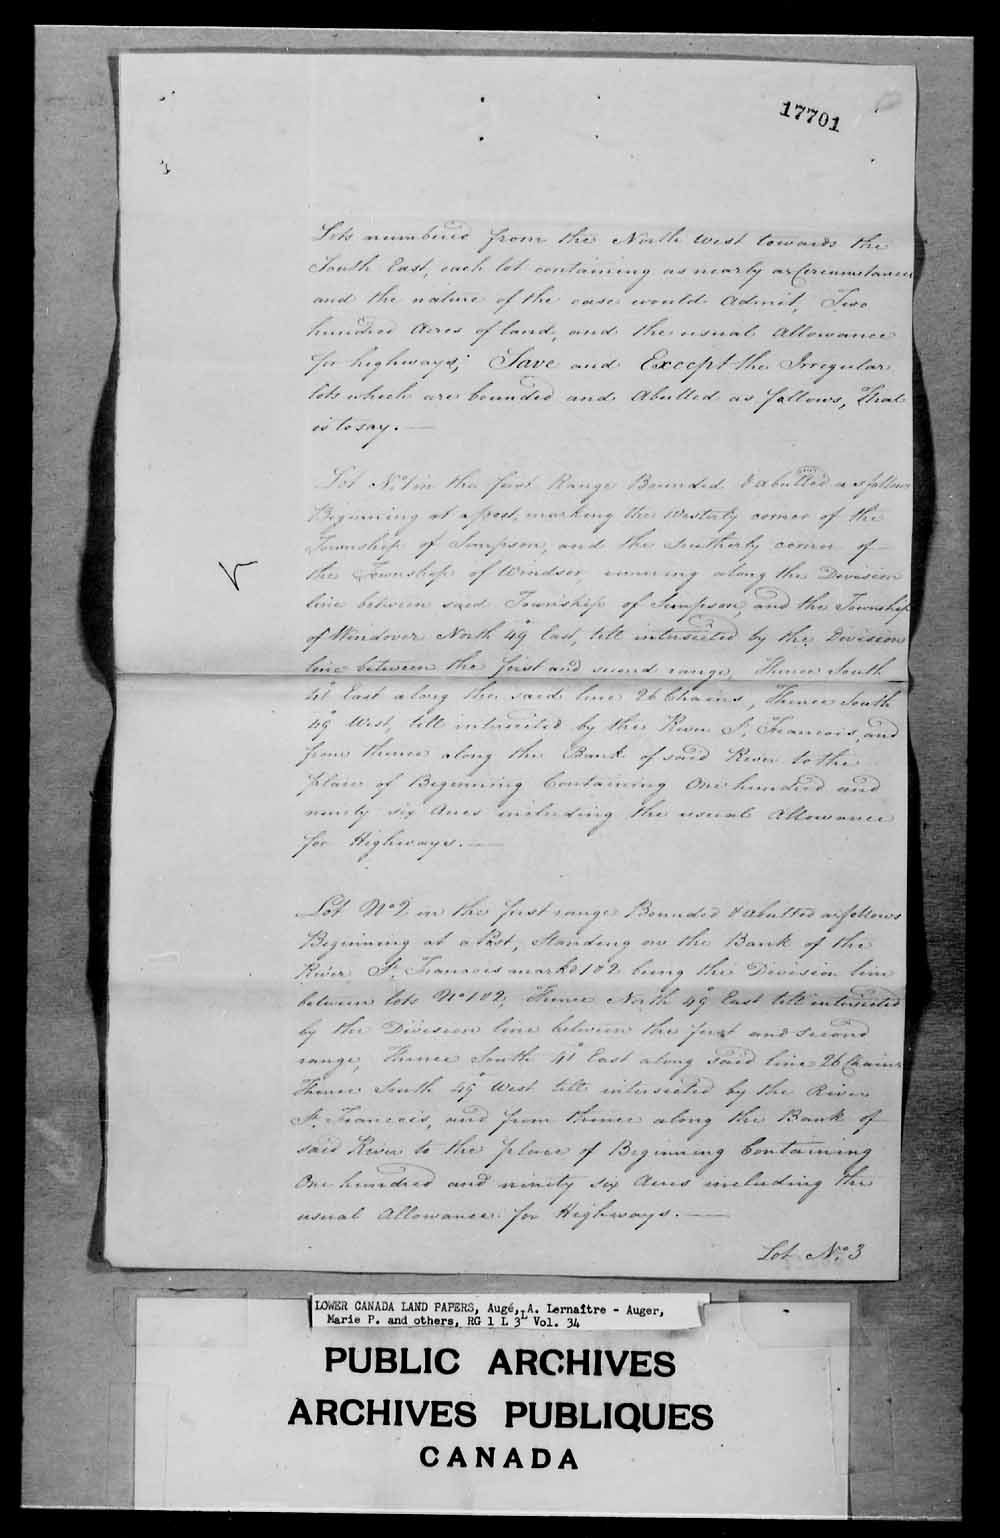 17701
Lots numbered from the North West towards the
South East, each lot containing as nearly as Circumstances
and the nature of the case would Admit, Two
hundred Acres of land, and the usual Allowance
for highways; Save and Except the Irregular
lots which are bounded and Abutted as follows, That
is to say.
Lot No. 1 in the first Range Bounded & abutted as follows
Beginning at a post, marking the Westerly corner of the
Township of Simpson, and the Southerly corner of
the Township of Windsor, running along the Division
line between said Township of Simpson, and the Township
of Wendover North 49° East, till intersected by the Division
line between the first and second range, Thence South
41° East along the said line 26 Chains, Thence South
49° West, till intersected by the River St. Francois, and
from thence along the Bank of said River to the
place of Beginning Containing One hundred and
ninety six Acres including the usual Allowance
for Highways.
Lot No 2 in the first range Bounded & abutted as follows
Beginning at a Post, Standing on the Bank of the
River St. Francois markd 1 & 2 being the Division line
between lots No 1 & 2, Thence North 49° East till intersected
by the Division line between the first and Second
range, Thence South 41° East along said line 26 Chains
Thence South 49° West till intersected by the River
St. Francois, and from thence along the Bank of
said River to the place of Beginning Containing
One hundred and ninety six Acres including the
usual Allowance for Highways.
Lot No. 3
LOWER CANADA LAND PAPERS, Augé, A. Lernaître - Auger,
Marie P. and others, RG 1 L 3L Vol. 34
PUBLIC ARCHIVES
ARCHIVES PUBLIQUES
CANADA